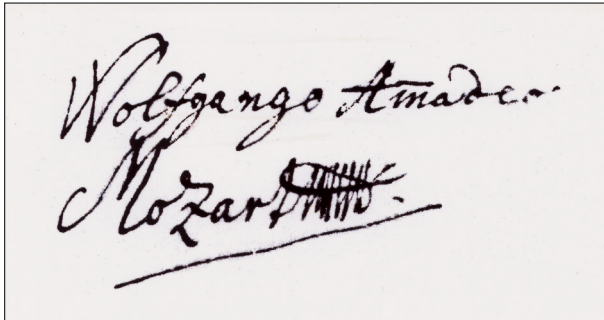 Wolfgango Amadeo
Mozart